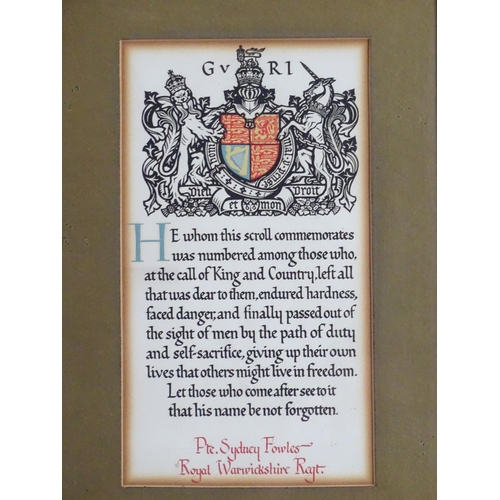 G V R I
Dieu et mon Droit
HE whom this scroll commemorates
was numbered among those who,
at the call of King and Country, left all
that was dear to them, endured hardness,
faced danger, and finally passed out of
the sight of men by the path of duty
and self-sacrifice, giving up their own
lives that others might live in freedom.
Let those who come after see to it
that his name be not forgotten.
Pte. Sydney Fowles
Royal Warwickshire Regt.